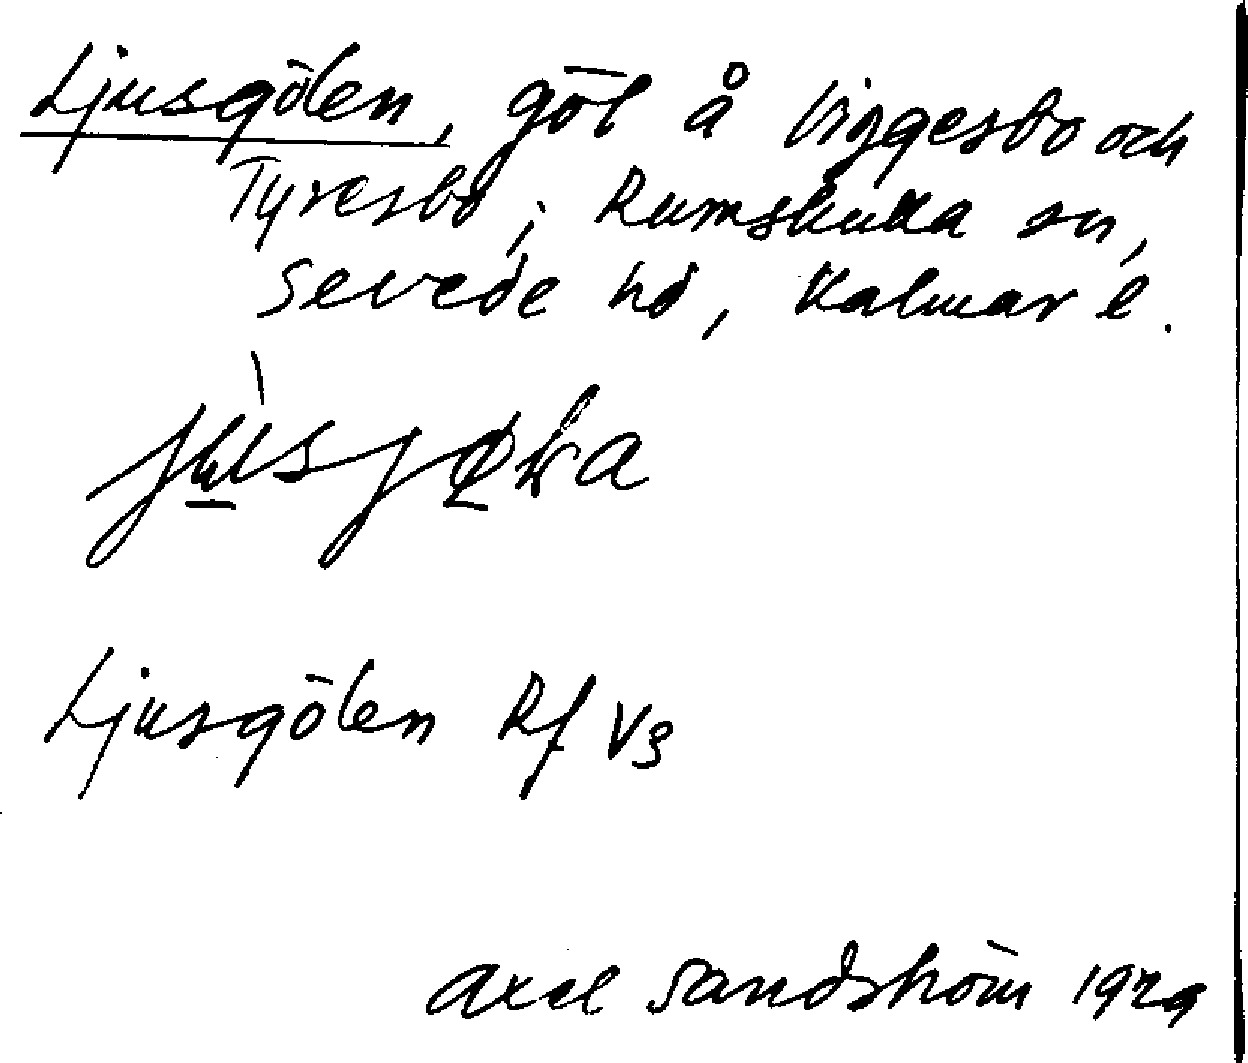 Ljusgölen, göl å Viggesbo och
Tyresbo, Rumskulla sn,
Sevede hd, Kalmar l.
Ljusgölen Rf V3
Axel Sandström 1929